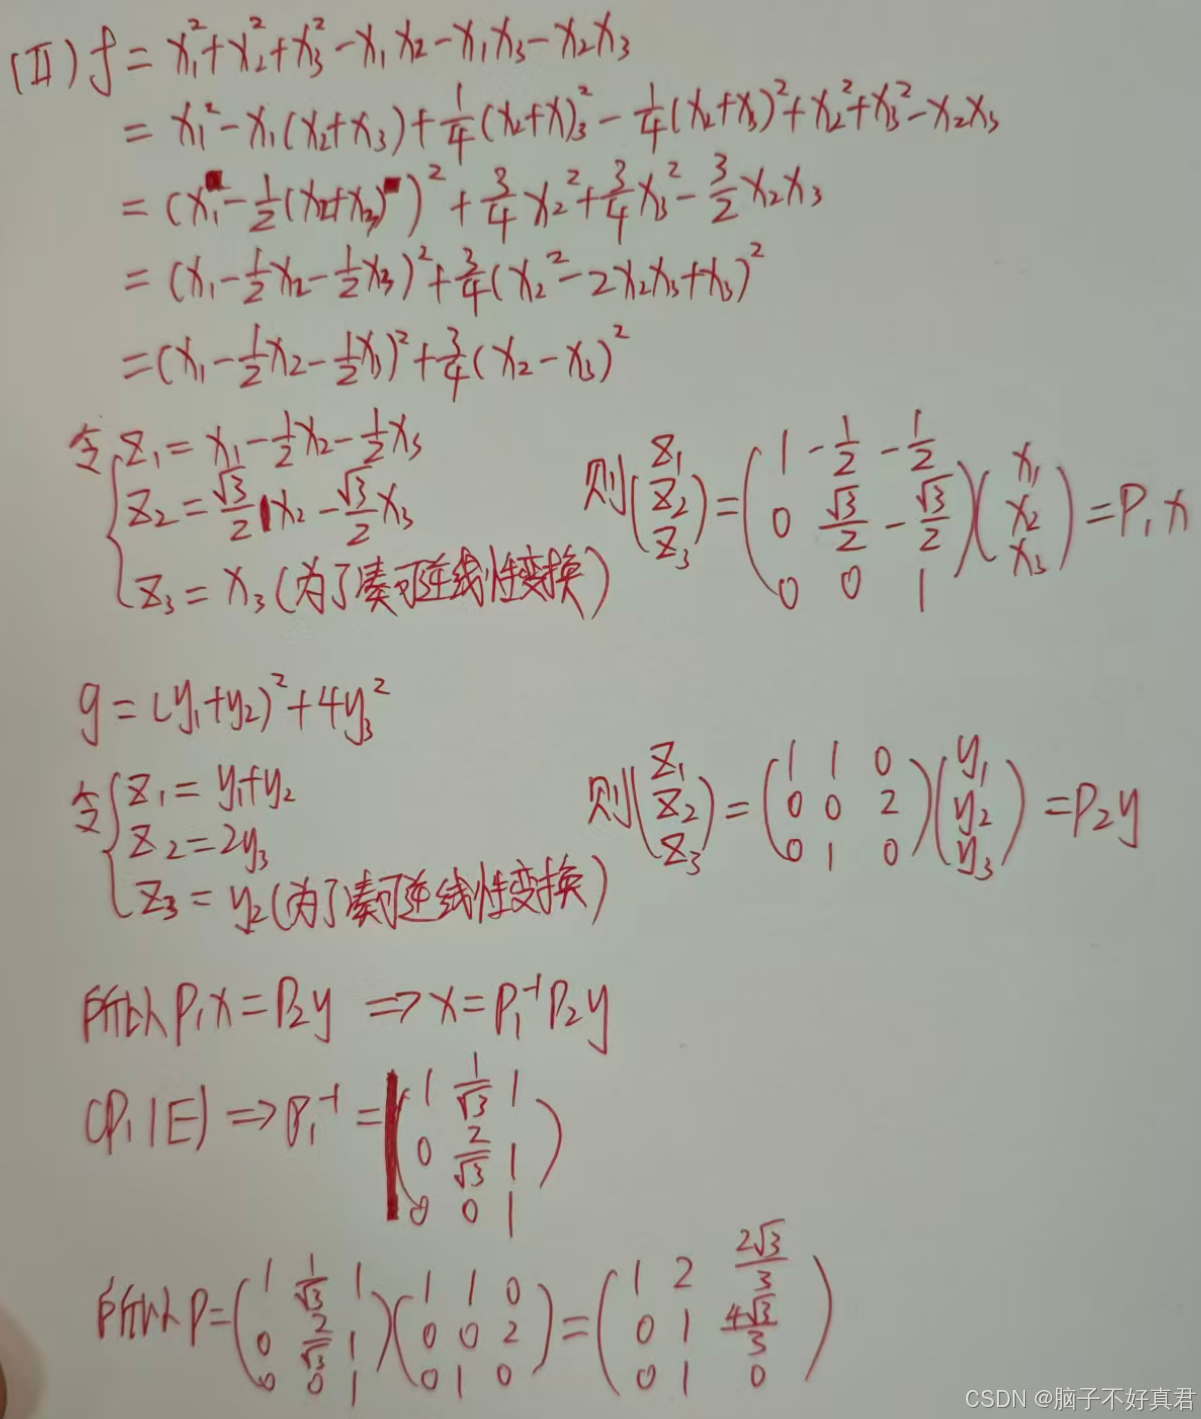 (Ⅱ) f = x₁²+x₂²+x₃²-x₁x₂-x₁x₃-x₂x₃
= x₁²-x₁(x₂+x₃)+1/4(x₂+x)₃²-1/4(x₂+x₃)²+x₂²+x₃²-x₂x₃
= (x₁-1/2(x₂+x₃))²+3/4x₂²+3/4x₃²-3/2x₂x₃
= (x₁-1/2x₂-1/2x₃)²+3/4(x₂²-2x₂x₃+x₃)²
=(x₁-1/2x₂-1/2x₃)²+3/4(x₂-x₃)²
令{z₁=x₁-1/2x₂-1/2x₃
z₂=√3/2x₂-√3/2x₃
z₃=x₃(为了凑可逆线性变换)
则(z₁ z₂ z₃)=(1 -1/2 -1/2
0 √3/2 -√3/2
0 0 1)(x₁ x₂ x₃)=P₁x
g=(y₁+y₂)²+4y₃²
令{z₁=y₁+y₂
z₂=2y₃
z₃=y₂(为了凑可逆线性变换)
则(z₁ z₂ z₃)=(1 1 0
0 0 2
0 1 0)(y₁ y₂ y₃)=P₂y
所以P₁x=P₂y ⇒x=P₁⁻¹P₂y
(P₁|E)⇒P₁⁻¹=(1 1/√3 1
0 2/√3 1
0 0 1)
所以P=(1 1/√3 1
0 2/√3 1
0 0 1)(1 1 0
0 0 2
0 1 0)=(1 2 2√3/3
0 1 4√3/3
0 1 0)
CSDN @脑子不好真君